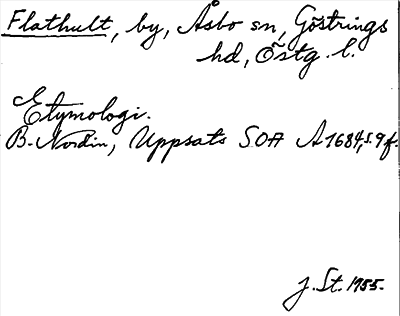 Flathult, by, Åsbo sn, Göstrings
hd, Östg. l.
Etymologi.
B. Nordin, Uppsats SOA A1684, s. 9 f.
J. St. 1955.